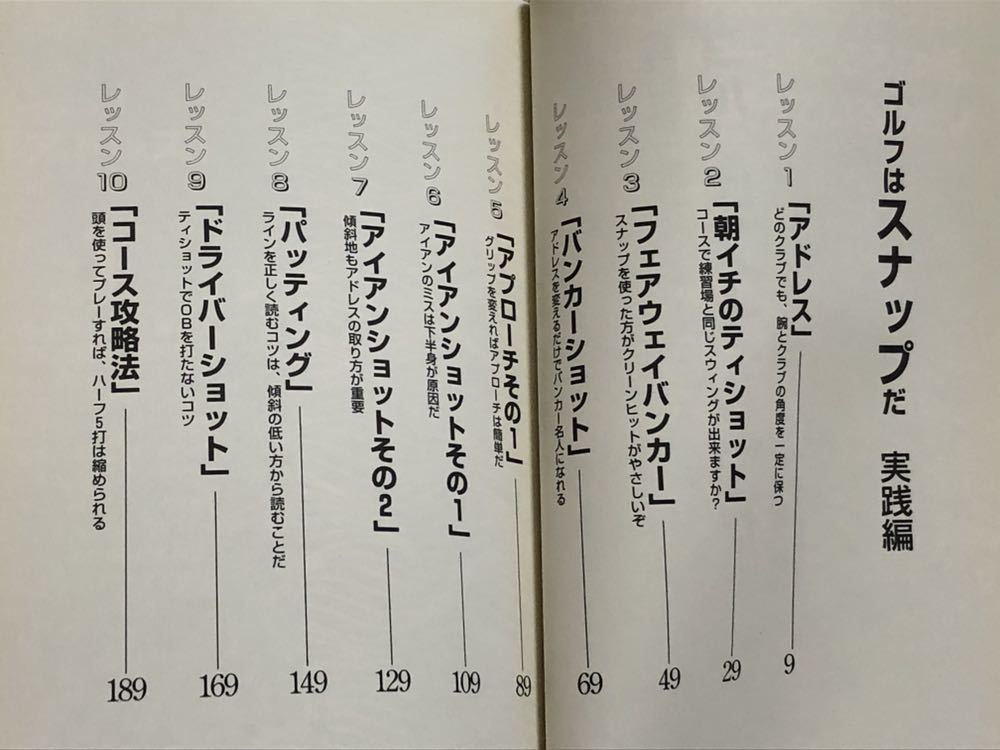 ゴルフはスナップだ 実践編
レッスン1
「アドレス」
どのクラブでも、腕とクラブの角度を一定に保つ
9
レッスン2
「朝イチのティショット」
コースで練習場と同じスウィングが出来ますか?
29
レッスン3
「フェアウェイバンカー」
スナップを使った方がクリーンヒットがやさしいぞ
49
レッスン4
「バンカーショット」
アドレスを変えるだけでバンカー名人になれる
69
レッスン5
「アプローチその1」
グリップを変えればアプローチは簡単だ
89
レッスン6
「アイアンショットその1」
アイアンのミスは下半身が原因だ
109
レッスン7
「アイアンショットその2」
傾斜地もアドレスの取り方が重要
129
レッスン8
「パッティング」
ラインを正しく読むコツは、傾斜の低い方から読むことだ
149
レッスン9
「ドライバーショット」
ティショットでOBを打たないコツ
169
レッスン10
「コース攻略法」
頭を使ってプレーすれば、ハーフ5打は縮められる
189